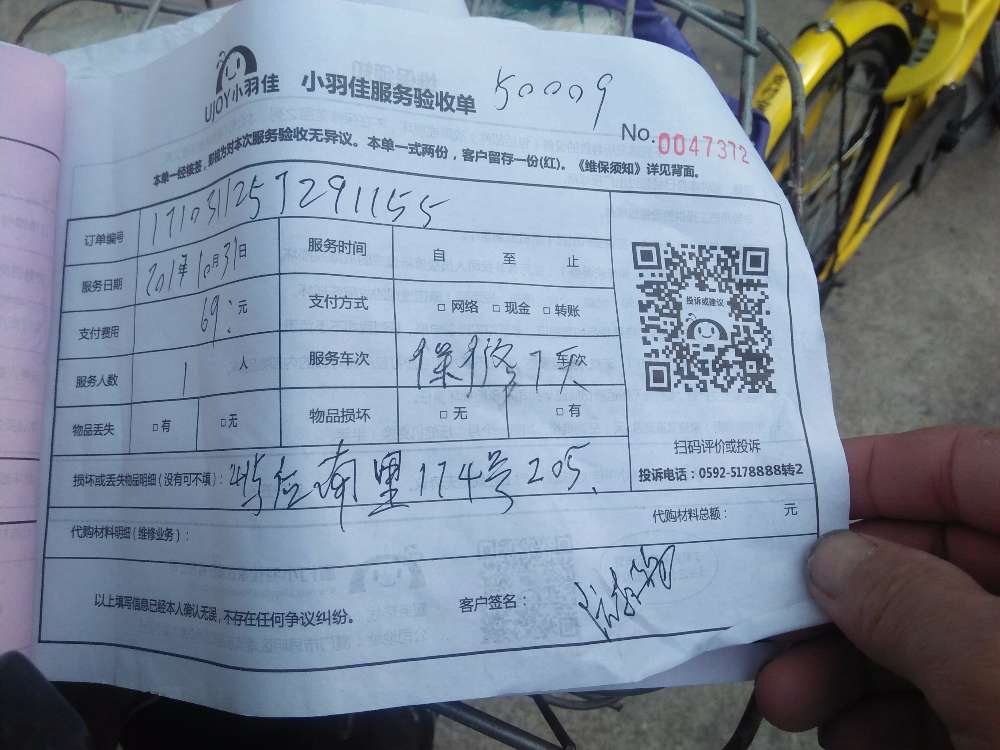 UJOY小羽佳 小羽佳服务验收单 50009
No. 0047372
本单一经核签，即视为对本次服务验收无异议。本单一式两份，客户留存一份(红)。《维保须知》详见背面。
订单编号 171031257291155
服务日期 201年10月31日 服务时间 自 至 止
支付费用 69: 元 支付方式 □网络 □现金 □转账
服务人数 1 人 服务车次 保修7天 车次
物品丢失 □有 □无 物品损坏 □无 □有
投诉或建议
扫码评价或投诉
投诉电话：0592-5178888转2
损坏或丢失物品明细（没有可不填）： 南里174号205
代购材料明细（维修业务）： 代购材料总额： 元
以上填写信息已经本人确认无误，不存在任何争议纠纷。 客户签名：